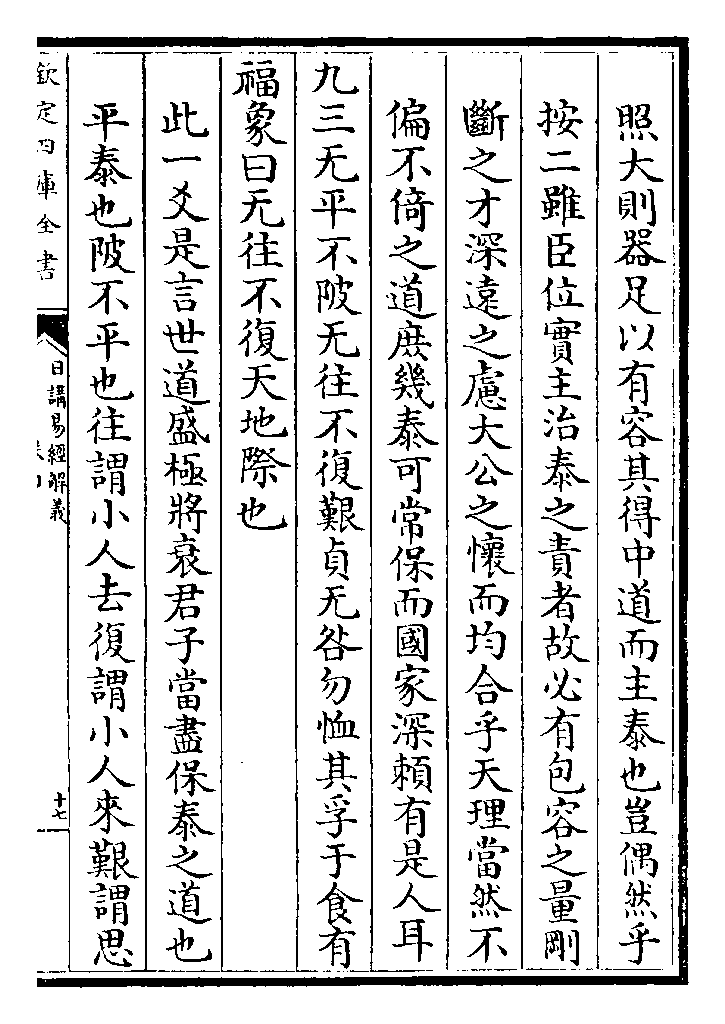 照大則器足以有容其得中道而主泰也豈偶然乎
按二雖臣位實主治泰之責者故必有包容之量剛
斷之才深遠之慮大公之懷而均合乎天理當然不
偏不倚之道庶幾泰可常保而國家深頼有是人耳
九三无平不陂无往不復艱貞无咎勿恤其孚于食有
福象曰无往不復天地際也
此一爻是言世道盛極將衰君子當盡保泰之道也
平泰也陂不平也往謂小人去復謂小人來艱謂思
欽定四庫全書
日講易經解義
十七